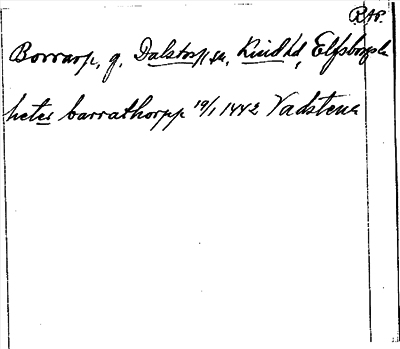 RAp.
Borrarp, g, Dalstorp sn, Kind hd, Elfsborgs l.
heter barrathorpp 19/1 1442 Vadstena